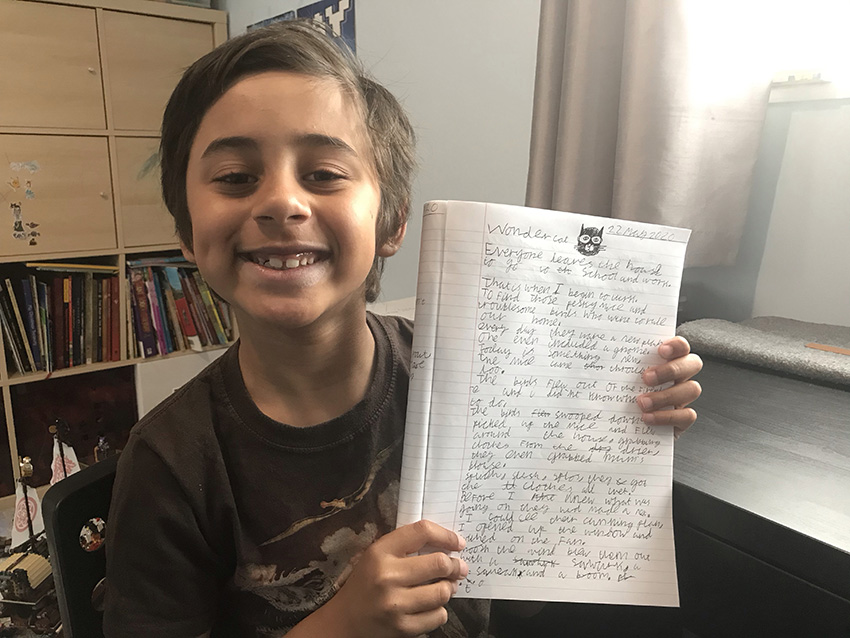 Wonder cat 22 May 2020
Everyone leaves the house
to go to sch School and work.
That's when I begin to work.
To find those pesky mice and
troublesome birds who want to rule
our home.
every day they have a new plan
One even included a gnome.
Today is something new
the mice came through
too.
The birds flew out of the
and I did not know what
to do.
The birds swooped down
picked up the mice and flew
around the house, grabbing
clothes from the drier,
they even grabbed mum's
blouse.
the clothes all wet.
before I knew what was
going on they had made a
I could see their cunning plan
I opened up the window and
on the Fan.
the wind blew them out
with a
squeak and a boom.